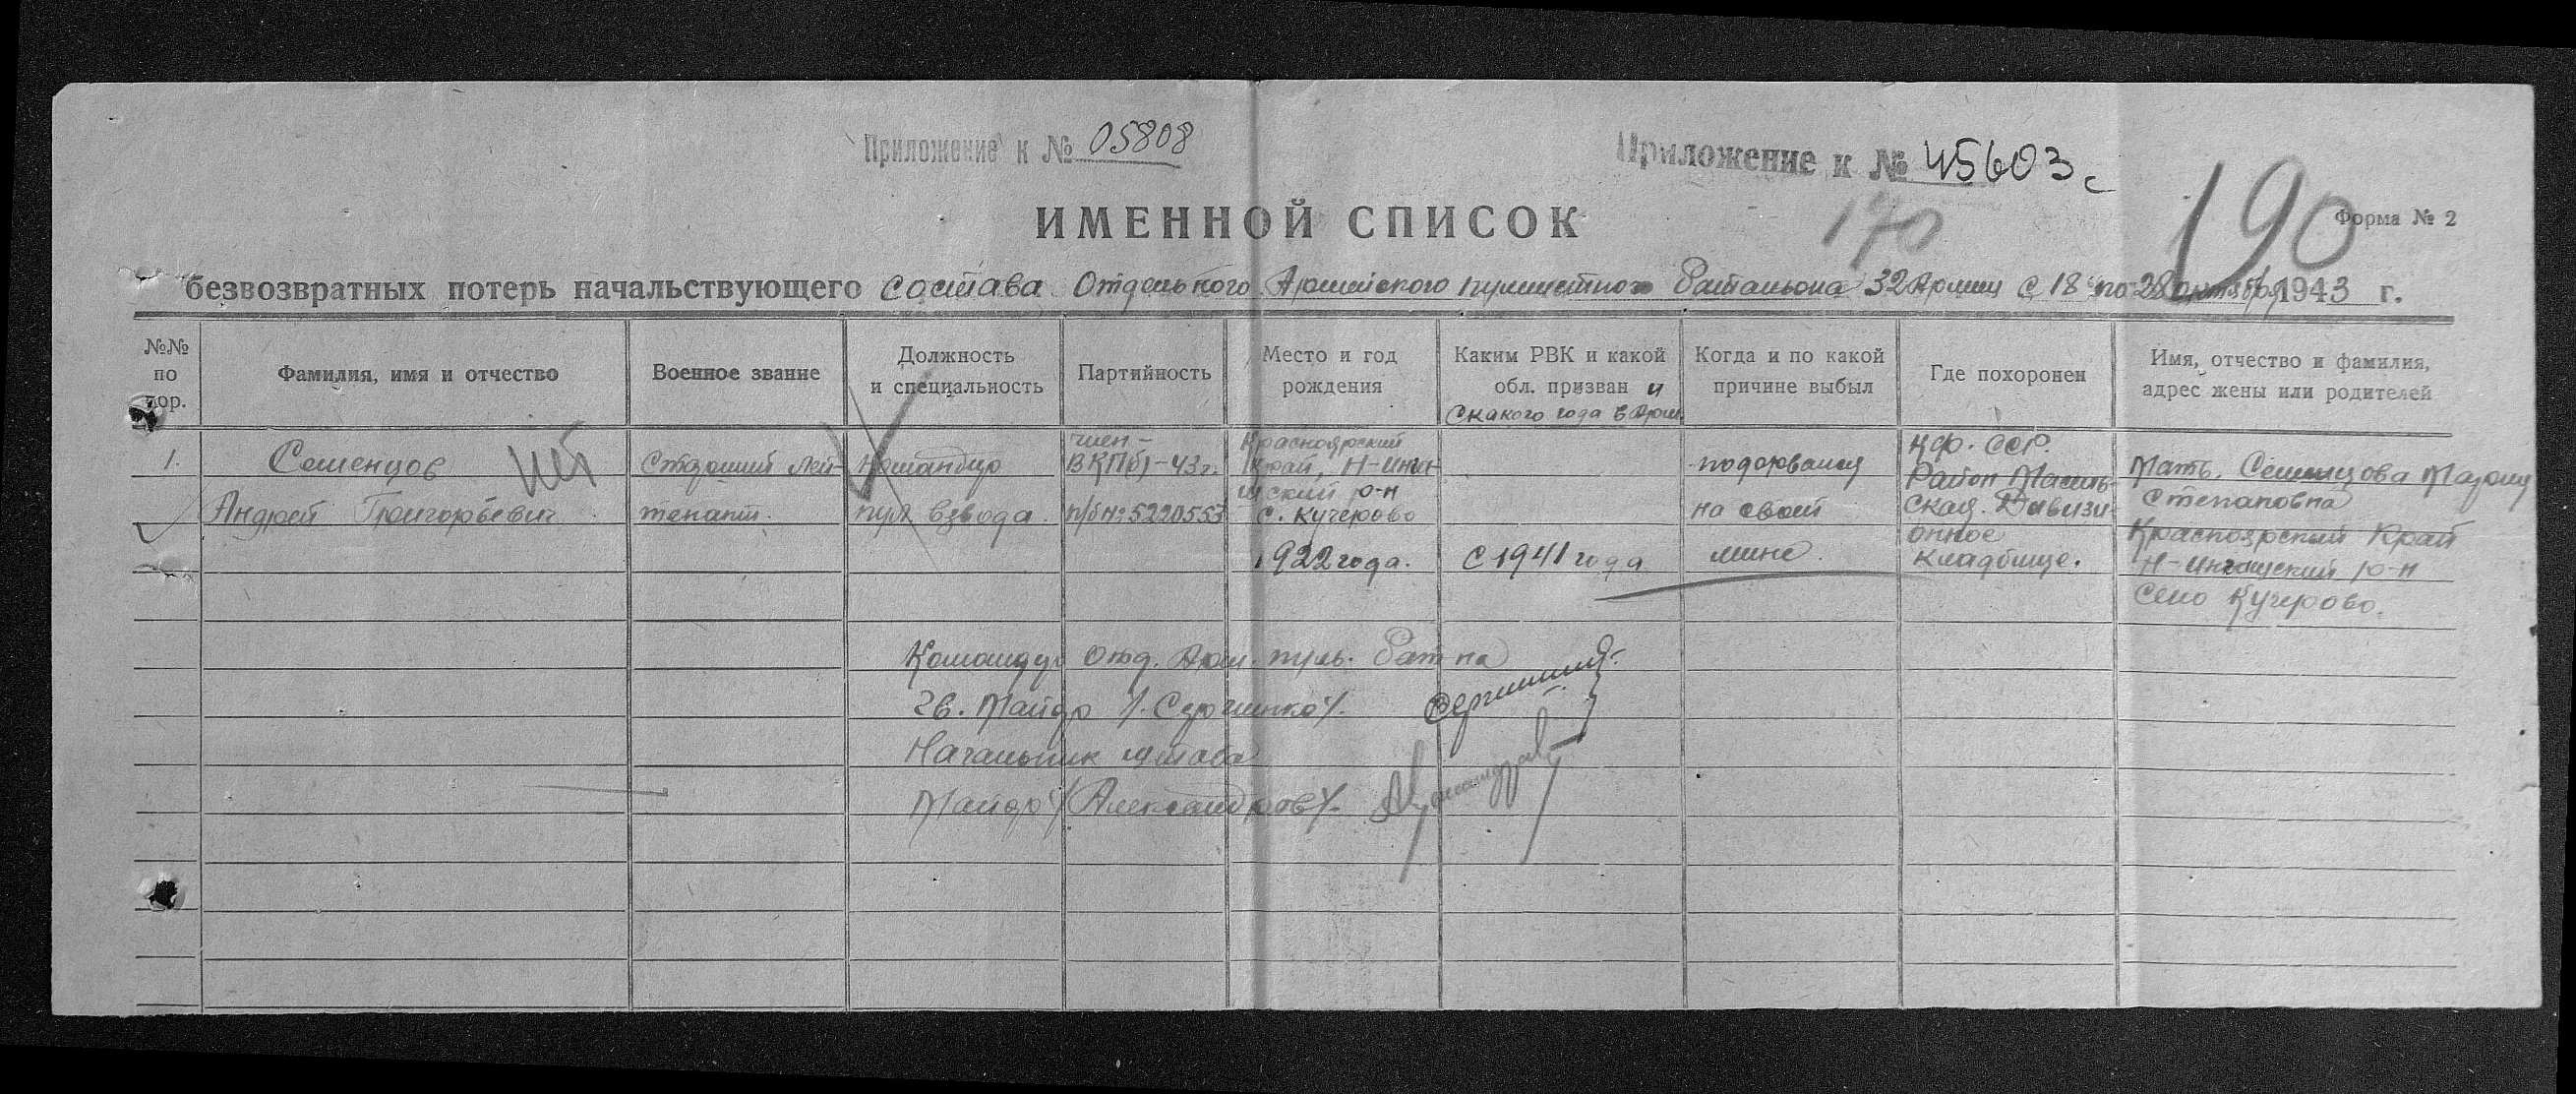 Приложение к № 05808
Приложение к № 45603с
ИМЕННОЙ СПИСОК
170
190
Форма № 2
безвозвратных потерь начальствующего состава Отдельного Армейского пулеметного Батальона 32 Армии с 18 по 28 октября 1943 г.
№№ по пор.
Фамилия, имя и отчество
Военное звание
Должность и специальность
Партийность
Место и год рождения
Каким РВК и какой обл. призван и с какого года в Арм.
Когда и по какой причине выбыл
Где похоронен
Имя, отчество и фамилия, адрес жены или родителей
1.
Семенцов
Андрей Григорьевич
нет
Старший лей-
тенант.
Командир
пул взвода.
член -
ВКП(б) - 43 г.
п/б № 5220553
Красноярский
край, Н-Инга-
шский р-н
с. Кучерово
1922 года.
С 1941 года
подорвался
на своей
мине.
Кф. ССР.
Район Масель-
ская. Дивизи-
онное
кладбище.
Мать. Семенцова Мария
Степановна
Красноярский Край
Н-Ингашский р-н
Село Кучерово.
Командир Отд. Арм. пуль. Бат на
гв. Майор /. Сергиенко /.
Начальник штаба
Майор / Александров /.